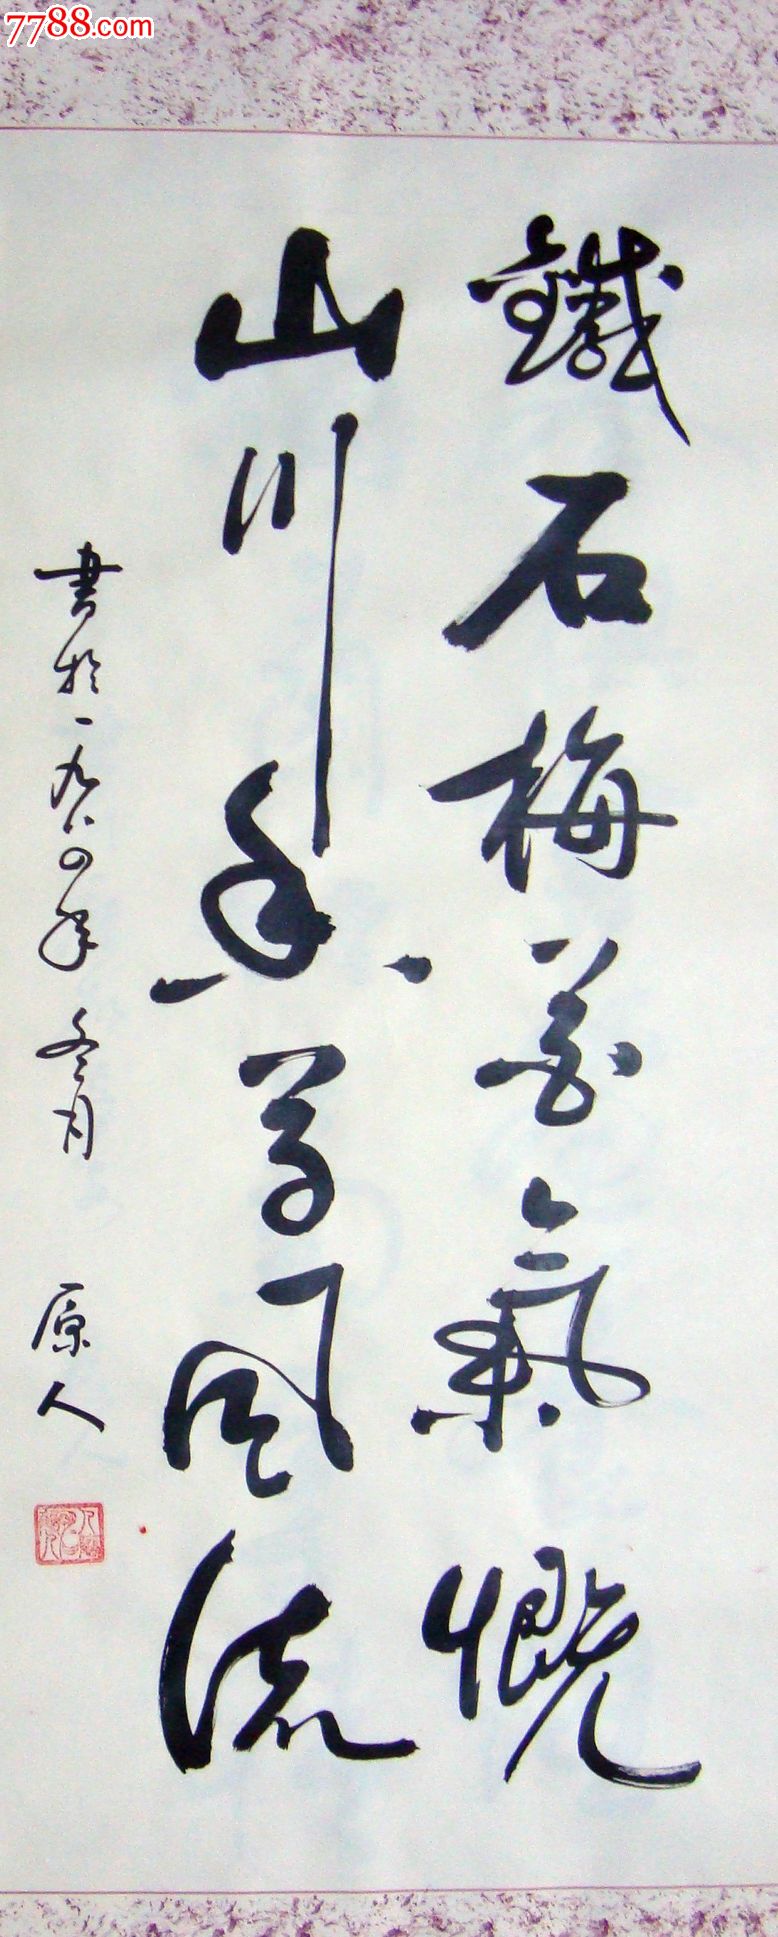 7788.com
鐵石梅花氣慨
山川香草風流
書於一九八四年冬月 原人